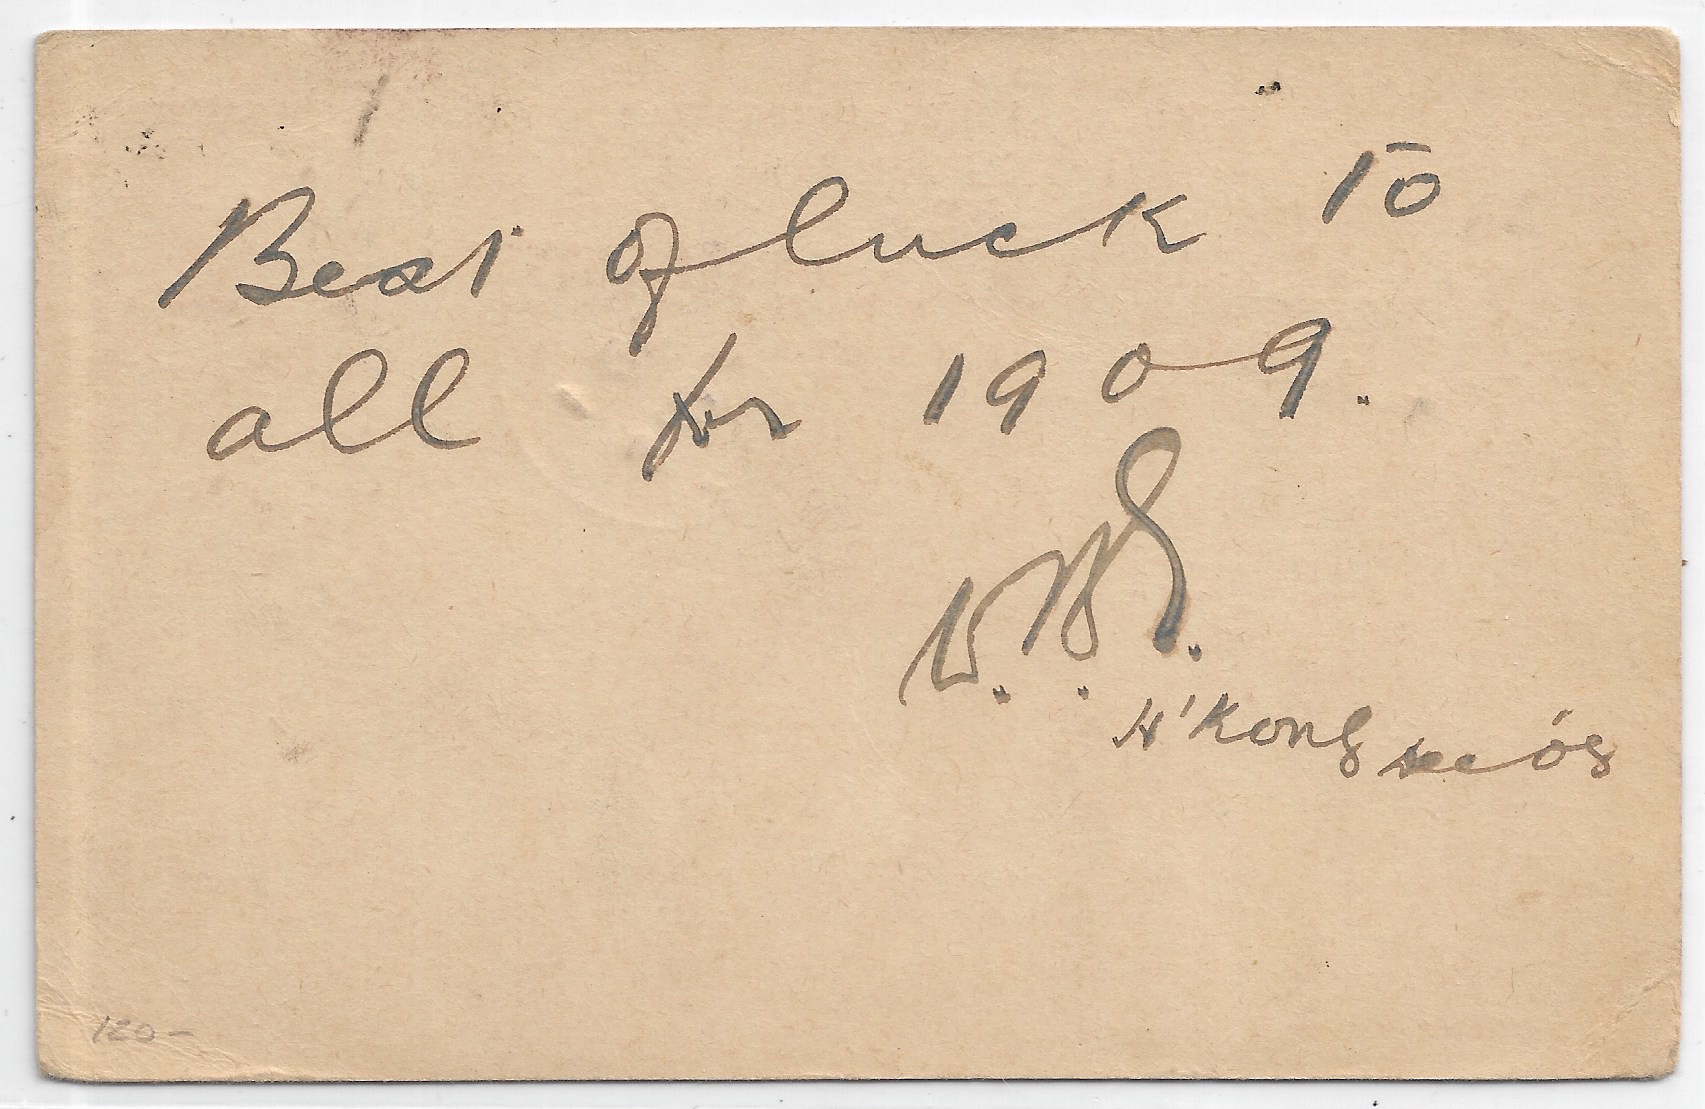 Best of luck to
all for 1909.
H'Kong Dec 08
120-